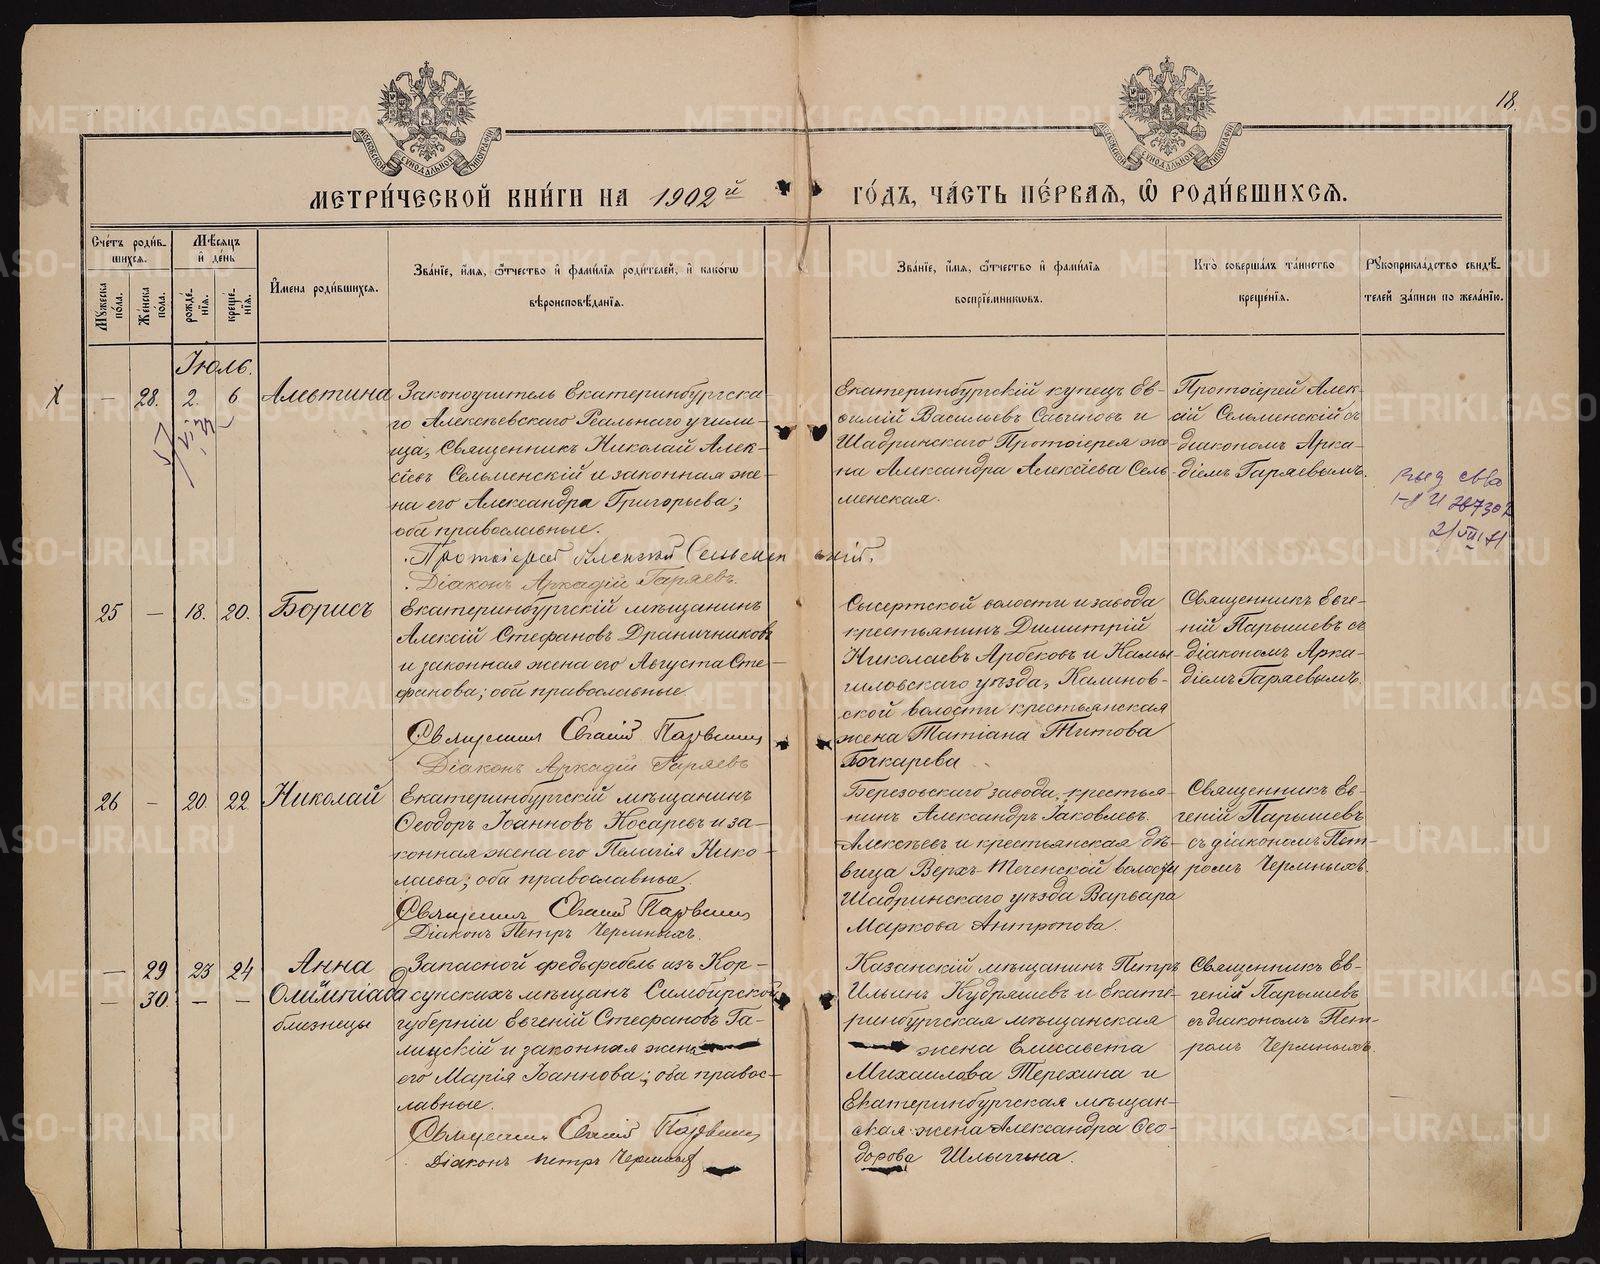 18.
МЕТРИ́ЧЕСКОЙ КНИ́ГИ НА 1902й ГО́ДЪ, ЧА́СТЬ ПЕ́РВАѦ, Ѿ РОДИ́ВШИХСѦ.
Сче́тъ роди́в-
шихсѧ.
Мꙋжеска по́ла.
Же́нска по́ла.
Мѣ́сѧцъ
и҆ де́нь
рожде́-
нїѧ.
креще́-
нїѧ.
И҆мена роди́вшихсѧ.
Зва́нїе, и҆́мѧ, ѻ҆́тчество и҆ фами́лїѧ роди́телей, и҆ како́гѡ
вѣроисповѣ́данїѧ.
Зва́нїе, и҆́мѧ, ѻ҆́тчество и҆ фами́лїѧ
воспрїе́мникѡвъ.
Кто̀ соверша́лъ та́инство
креще́нїѧ.
Рꙋкоприкла́дство свидѣ́-
телей за́писи по жела́нїю.
Іюль.
X — 28. 2. 6 Алевтина
Законоучитель Екатеринбургска-
го Алексѣевскаго Реальнаго учили-
ща, Священникъ Николай Алек-
сіевъ Сельменскій и законная же-
на его Александра Григорьева;
оба православные.
Протоіерей Алексій Сельменскій.
Діаконъ Аркадій Гаряевъ.
Екатеринбургскій купецъ Ев-
ѳимій Васильевъ Савиновъ и
Шадринскаго Протоіерея же-
на Александра Алексіева Сель-
менская.
Протоіерей Алек-
сій Сельменскій съ
діакономъ Арка-
діемъ Гаряевымъ.
21 VIII 71
25 — 18. 20. Борисъ
Екатеринбургскій мѣщанинъ
Алексій Стефановъ Драничниковъ
и законная жена его Августа Сте-
фанова; оба православные
Священникъ Евгеній Парышевъ
Діаконъ Аркадій Гаряевъ
Сысертской волости и завода
крестьянинъ Димитрій
Николаевъ Арбековъ и Камы-
шловскаго уѣзда, Калинов-
ской волости крестьянская
жена Татіана Титова
Бочкарева
Священникъ Евге-
ній Парышевъ съ
діакономъ Арка-
діемъ Гаряевымъ.
26 — 20. 22 Николай
Екатеринбургскій мѣщанинъ
Ѳеодоръ Іоанновъ Косаревъ и за-
конная жена его Пелагія Нико-
лаева; оба православные.
Священникъ Евгеній Парышевъ
Діаконъ Петръ Чермныхъ.
Березовскаго завода, крестья-
нинъ Александръ Іаковлевъ
Алексѣевъ и крестьянская дѣ-
вица Верхъ-Теченской волости
Шадринскаго уѣзда Варвара
Маркова Антропова.
Священникъ Ев-
геній Парышевъ
съ діакономъ Пет-
ромъ Чермныхъ.
— 29 23 24 Анна
и
— 30. — — Олимпіада
близнецы
Запасной фельдфебель изъ Кор-
сунскихъ мѣщанъ Симбирской
губерніи Евгеній Стефановъ Га-
лицкій и законная жена
его Марія Іоаннова; оба правос-
лавные.
Священникъ Евгеній Парышевъ
Діаконъ Петръ Чермныхъ
Казанскій мѣщанинъ Петръ
Ильинъ Кудряшевъ и Екате-
ринбургская мѣщанская
жена Елисавета
Михаилова Терехина и
Екатеринбургская мѣщан-
ская жена Александра Ѳео-
дорова Шлыгина.
Священникъ Ев-
геній Парышевъ
съ діакономъ Пет-
ромъ Чермныхъ.
METRIKI.GASO-URAL.RU